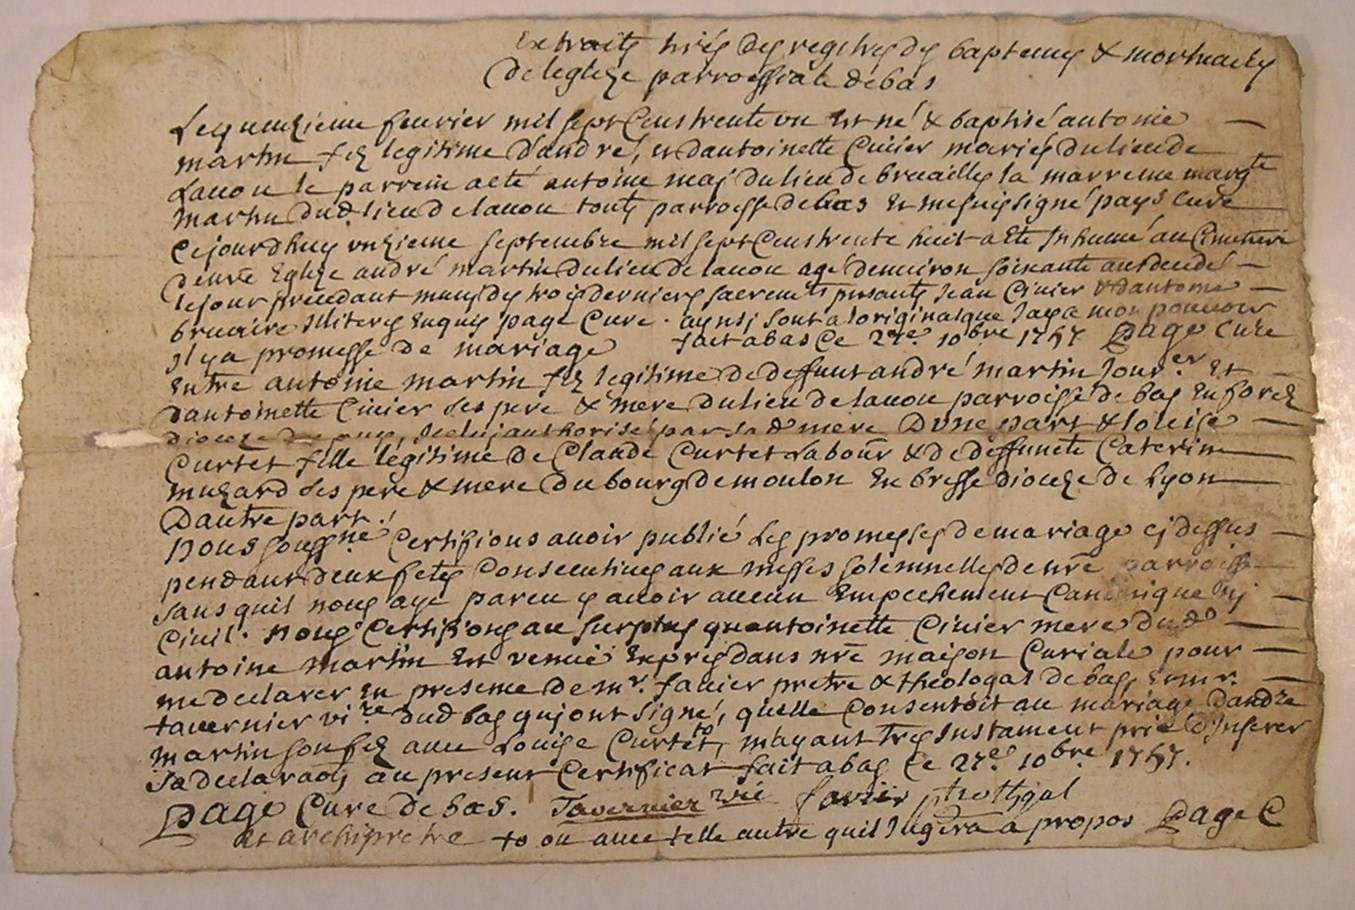 Extraits tirés des registres des baptemes & mortuaires
de leglize parroissiale de bas
Le quinzieme feuvrier mil sept cens trente un est né & baptisé antoine
martin fis legitime d'andré, et d'antoinette Civier mariés du lieu de
Lavou le parrein a eté antoine du lieu de la marreine margte
martin dud. lieu de lavou touts parroisse de bas et me suis signé pagés curé
Cejourdhuy unzieme septembre mil sept cens trente huit a eté Inhumé au Cimetiere
de nre Eglize andré martin du lieu de lavou agé denviron soixante ans decedé
le jour précedant muny des trois derniers sacrements presants Jean Civier & antoine
bruiaire Illiterés enquis page Curé. aynsi sont a loriginal que Jay a mon pouvoir
Il y a promesse de mariage fait a bas ce 27e 10bre 1757 Page Curé
Entre antoine martin fis legitime de deffunt andré martin Jour.er Et
dantoinette Civier ses pere & mere du lieu de lavou parroisse de bas En forez
dioceze de puy, Iceluy authorisé par sad. mere Dune part & louise
Curtet fille légitime de Claude Curtet Labour & de deffuncte Caterine
muzard ses pere & mere du bourg de moulon En bresse dioceze de Lyon
Dautre part.
Nous soussné Certifions avoir publié les promesses de mariage cy dessus
pendant deux fetes Consecutives aux messes solemnelles de nre parroisse
sans quil nous aye pareu y avoir aucun Empechement Canonique ny
Civil. Nous Certifions au surplus quantoinette Civier mere dud.
antoine martin Est venüe Expres dans nre maison Curiale pour
me declarer En presence de mr. favier pretre & theologal de bas, et mr.
tavernier vire dud bas qui ont signé, quelle Consentoit au mariage dandre
martin son fis avec Louise Curtet to, mayant tres Instament prié dInserer
sa declaraon au present Certificat fait a bas ce 27e. 10bre. 1757.
Page Curé de bas. Tavernier vre favier ptre thgal
et archipretre to ou avec telle autre quil Jugera a propos Page C